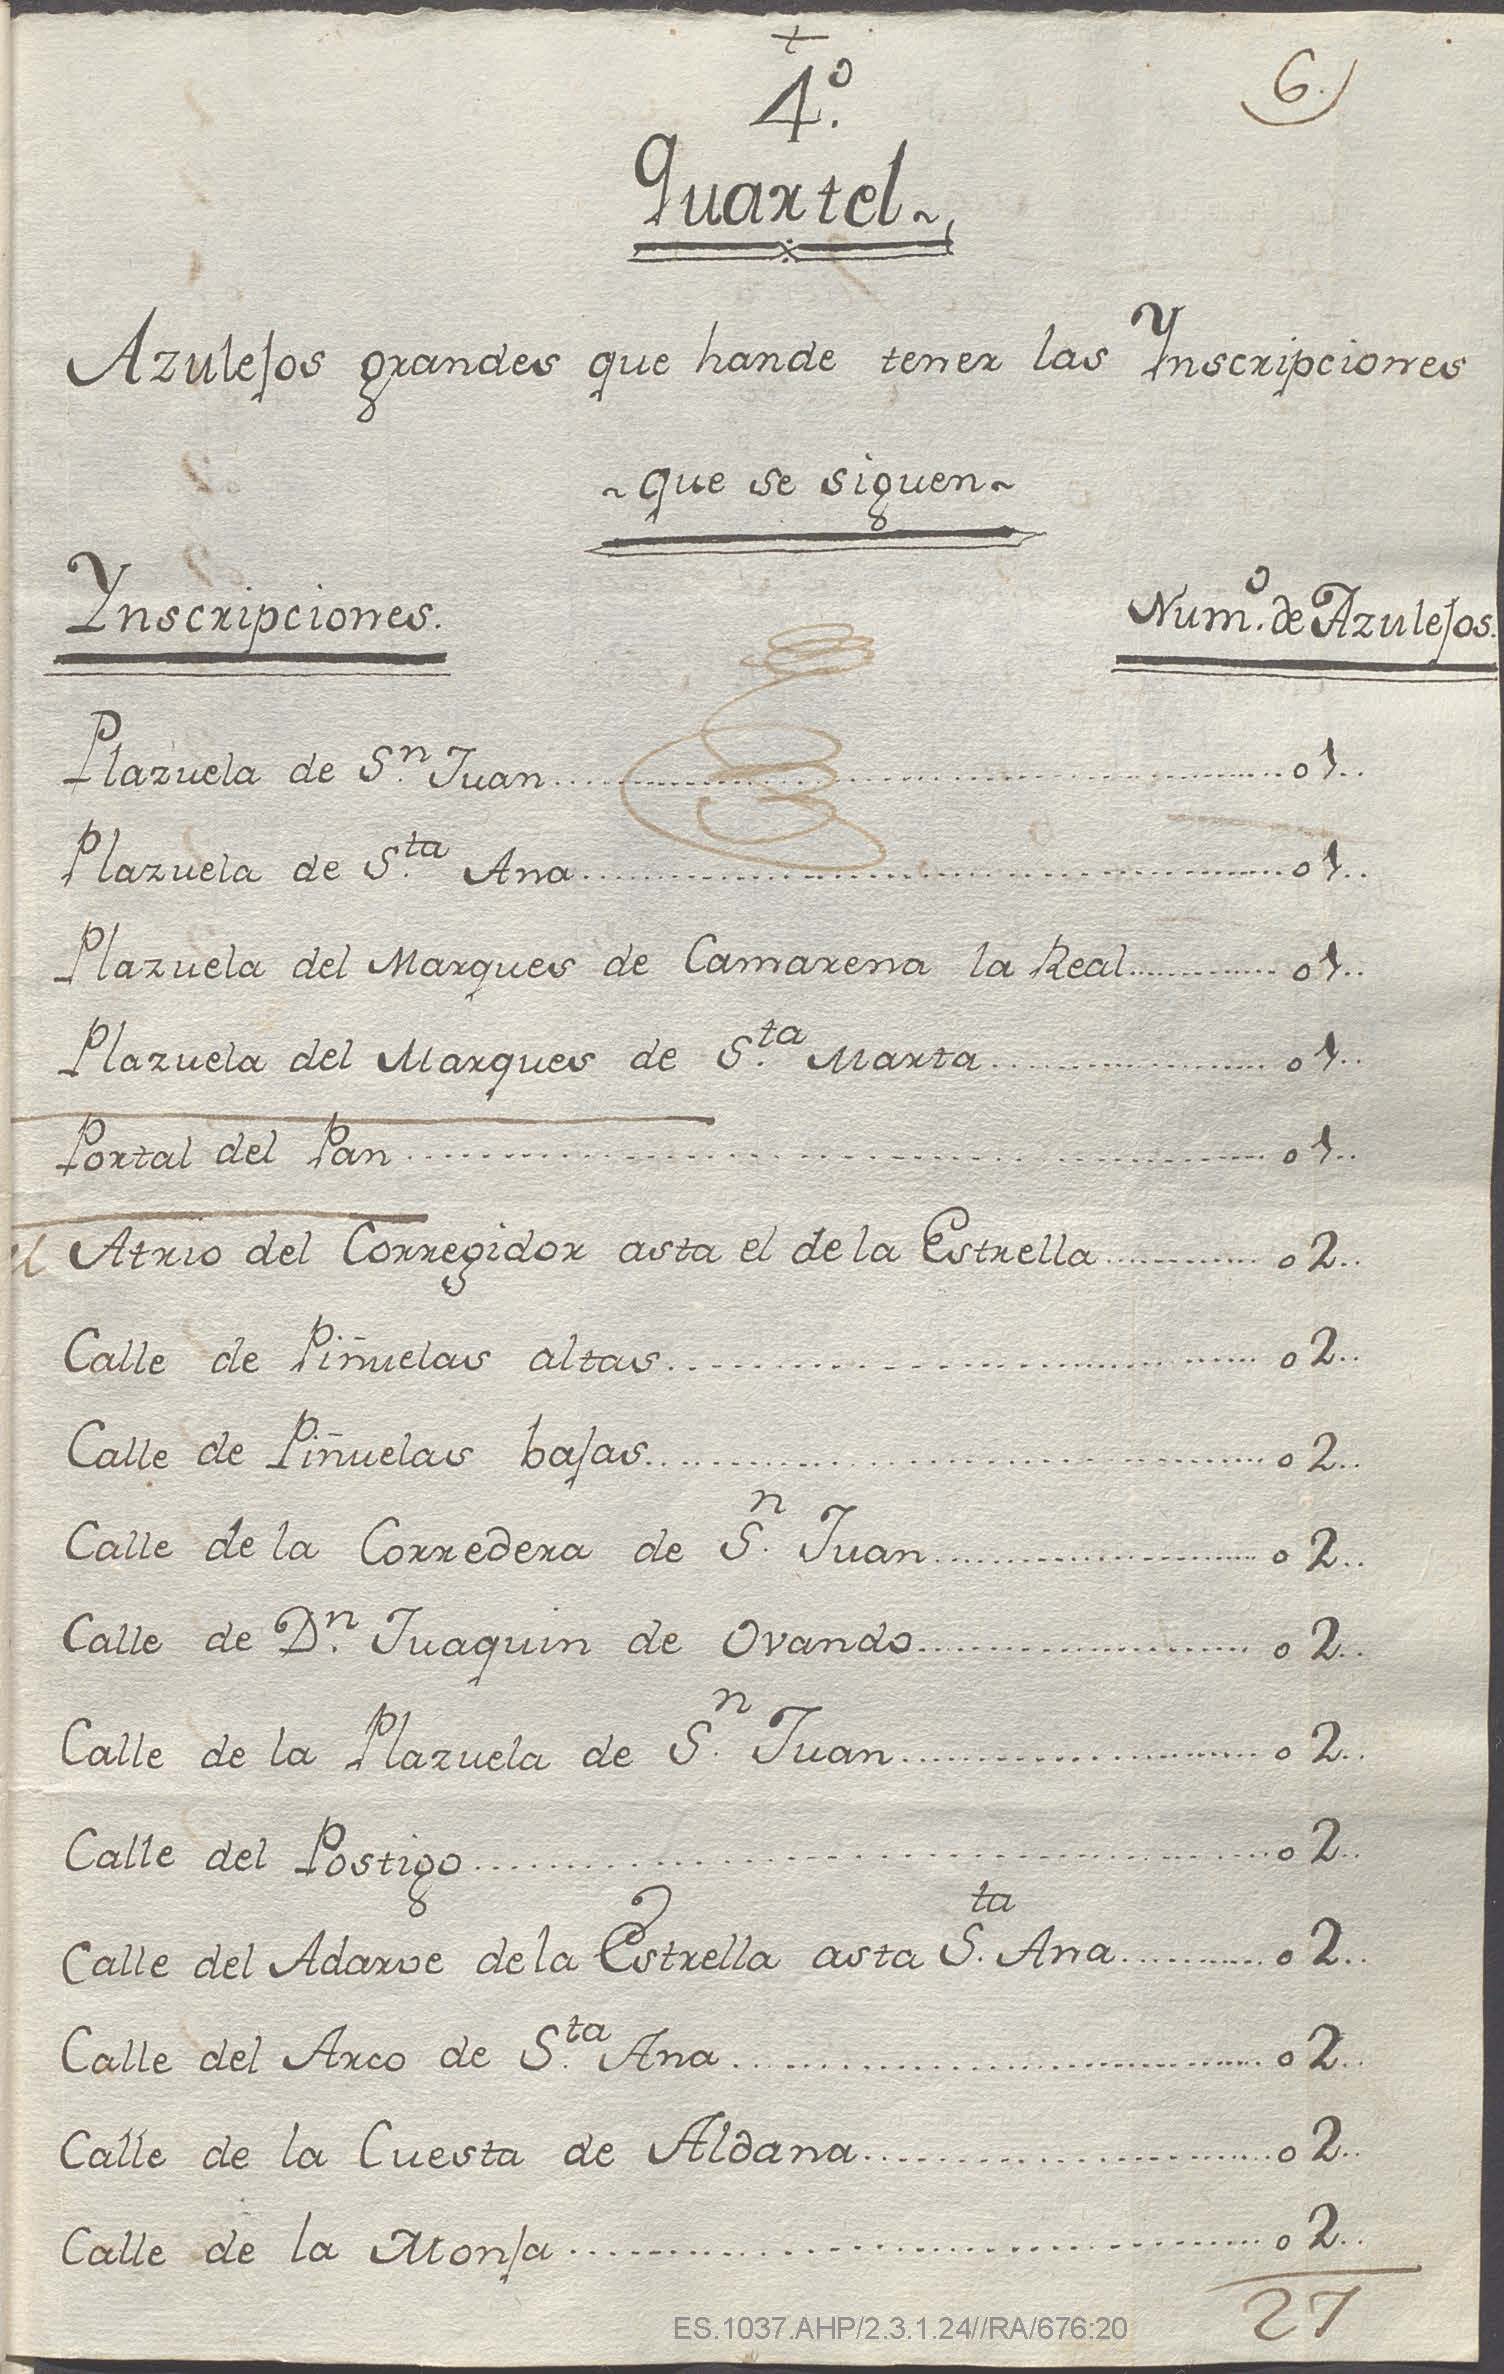 +
6.
4.º
Quartel~
Azulejos grandes que hande tener las Ynscripciones
~que se siguen~
Ynscripciones. Num.º de Azulejos.
Plazuela de S.n Juan 01..
Plazuela de S.ta Ana 01..
Plazuela del Marques de Camarena la Real 01..
Plazuela del Marques de S.ta Marta 01..
Portal del Pan 01..
el Atrio del Corregidor asta el de la Estrella 02..
Calle de Piñuelas altas 02..
Calle de Piñuelas bajas 02..
Calle de la Corredera de S.n Juan 02..
Calle de D.n Juaquin de Ovando 02..
Calle de la Plazuela de S.n Juan 02..
Calle del Postigo 02..
Calle del Adarve de la Estrella asta S.ta Ana 02..
Calle del Arco de S.ta Ana 02..
Calle de la Cuesta de Aldana 02..
Calle de la Monja 02..
27
ES.1037.AHP/2.3.1.24//RA/676:20